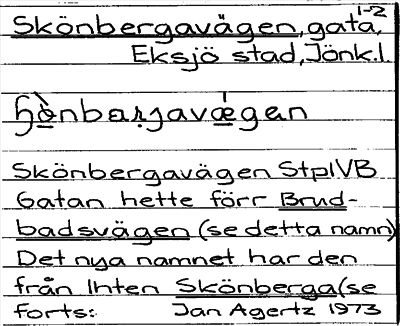 1-2
Skönbergavägen, gata,
Eksjö stad, Jönk.l.
ɧö̀nbaṛjavæ̍gen
Skönbergavägen StplVB
Gatan hette förr Brud-
badsvägen (se detta namn)
Det nya namnet har den
från lhten Skönberga(se
forts: Jan Agertz 1973